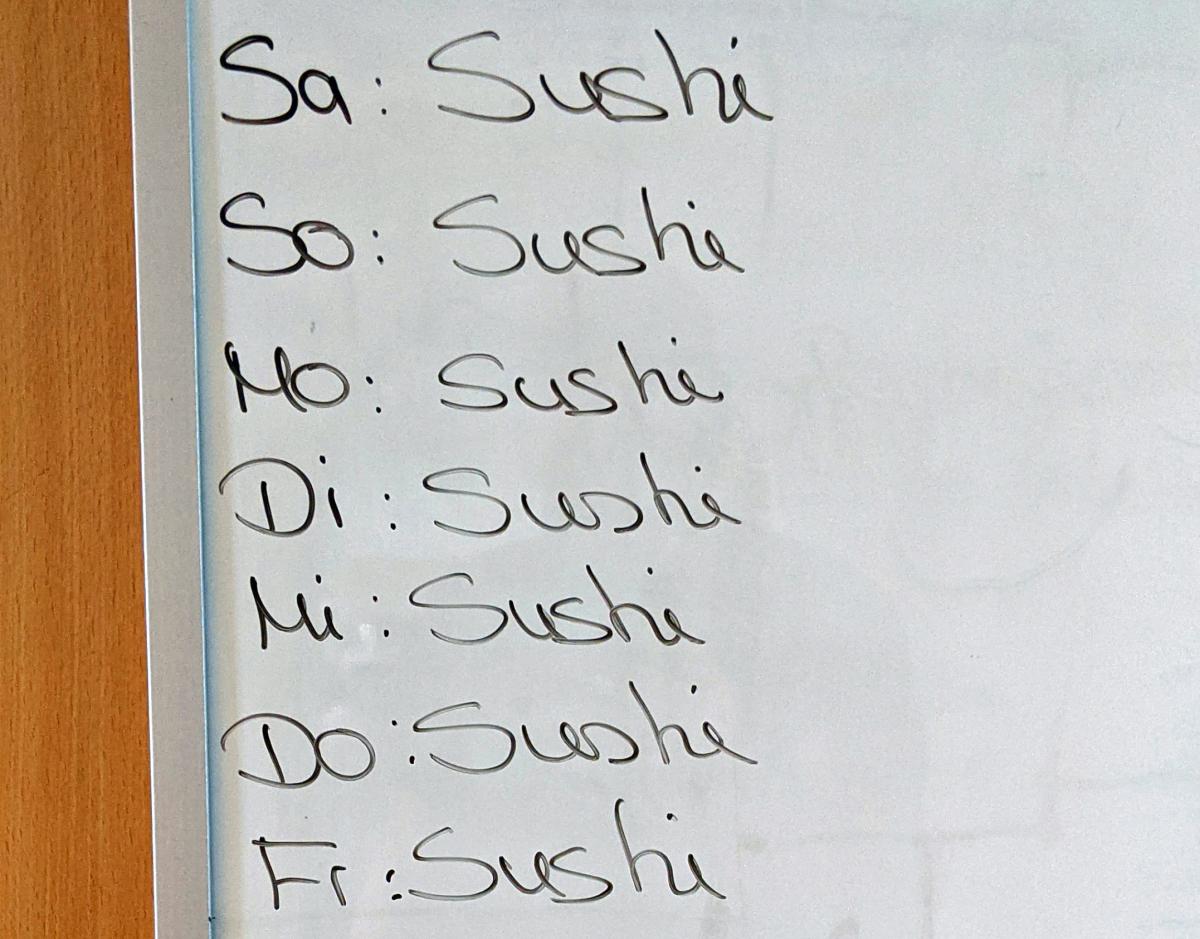 Sa: Sushi
So: Sushi
Mo: Sushi
Di: Sushi
Mi: Sushi
Do: Sushi
Fr: Sushi